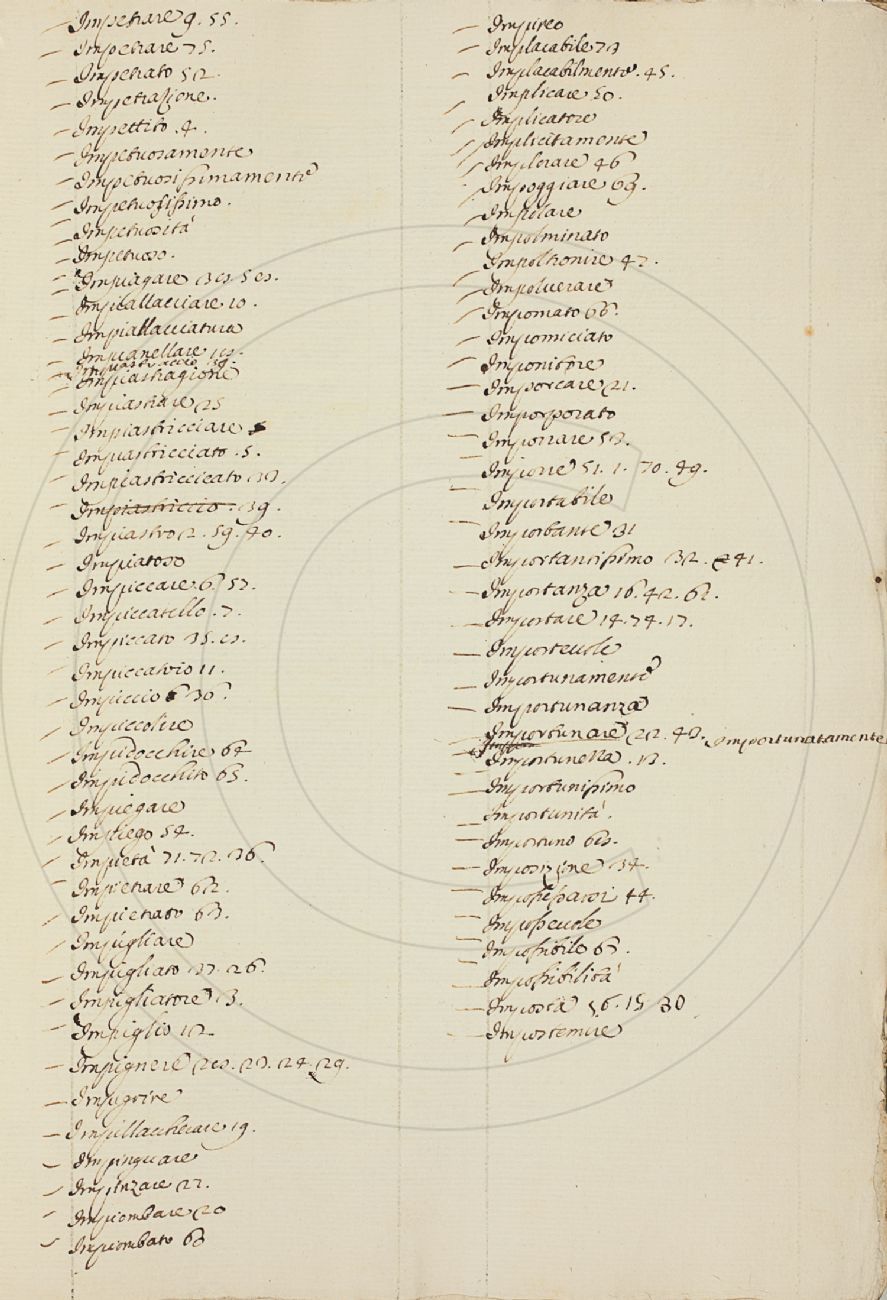 Impetrare 9. 55.
Impetrare 75.
Impetrato 52.
Impetrazione.
Impettito. 4.
Impetuosamente
Impetuosissimamente
Impetuosissimo.
Impetuosità
Impetuoso.
Impiagare
Impiallacciare 10.
Impiallacciatura
Impianellare
Impiastriccio 39.
Impiastragione
Impiastrare 25
Impiastricciare
Impiastricciato. 5.
Impiastricciato
Impiastriccio. 39.
Impiastro 2. 59. 40.
Impiatoso
Impiccare 6. 57.
Impiccatello. 7.
Impiccato
Impiccatoio 11.
Impiccio 6 36.
Impiccolire
Impidocchire 64
Impidocchito 65.
Impiegare
Impiego 54.
Impietà 71. 72. 36.
Impietrare 62.
Impietrato 63.
Impigliare
Impigliato 37. 26.
Impigliatore 3.
Impiglio 12
Impignere 28. 23. 24. 29.
Impigrire
Impillaccherare 19.
Impinguare
Impinzare 22.
Impiombare 20
Impiombato 63
Impireo
Implacabile 73
Implacabilmente. 45.
Implicare 50.
Implicatore
Implicitamente
Implorare 46
Impoggiare 69.
Impolare
Impolminato
Impoltronire 47.
Impolverare
Impomato 66.
Impomiciato
Imponitore
Imporcare 21.
Imporporato
Imporrare 53.
Imporre 51. 1. 70. 49.
Importabile
Importante 31
Importantissimo 32. 41.
Importanza 16. 42. 61.
Importare 14. 74. 17.
Importevole
Importunamente
Importunanza
Importunare 22. 43. Importunatamente
Importunezza. 13.
Importunissimo
Importunità.
Importuno 68.
Imposizione 34.
Impossessarsi 44.
Impossevole
Impossibile 67.
Impossibilità
Imposta 56. 15 30
Impostemire